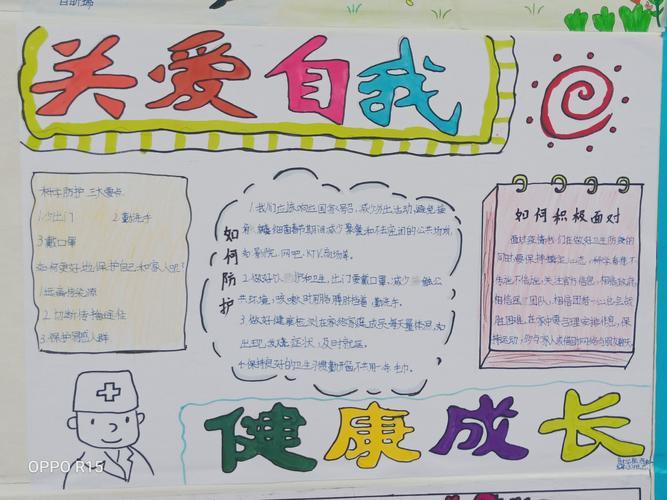 关爱自我
科学防护 三大要点
1.少出门 2.勤洗手
3.戴口罩
如何更好地保护自己和家人呢?
1.远离传染源
2.切断传播途径
3.保护易感人群
如何防护
1.我们应该响应国家号召,减少外出活动,避免接
春节期间减少聚集和不去密闭的公共场所,
如:影院、网吧、KTV、商场等。
2.做好 护和卫生,出门要戴口罩,减少 触公
共 ,咳嗽时用胳膊肘挡着,勤洗手。
3.做好健康检测在家给家庭成员每天量体温,如
出现,发烧症状,及时就医。
4.保持良好的卫生习惯勤开窗不共用一条毛巾。
如何积极面对
面对疫情我们在做好卫生防疫的
同时要保持镇定心态,科学看待不
传谣不信谣,关注官方信息,相信政府,
相信医 团队,相信团结一心总会战
胜困难,在家中要合理安排作息,保
持运动,
健康成长
OPPO R15